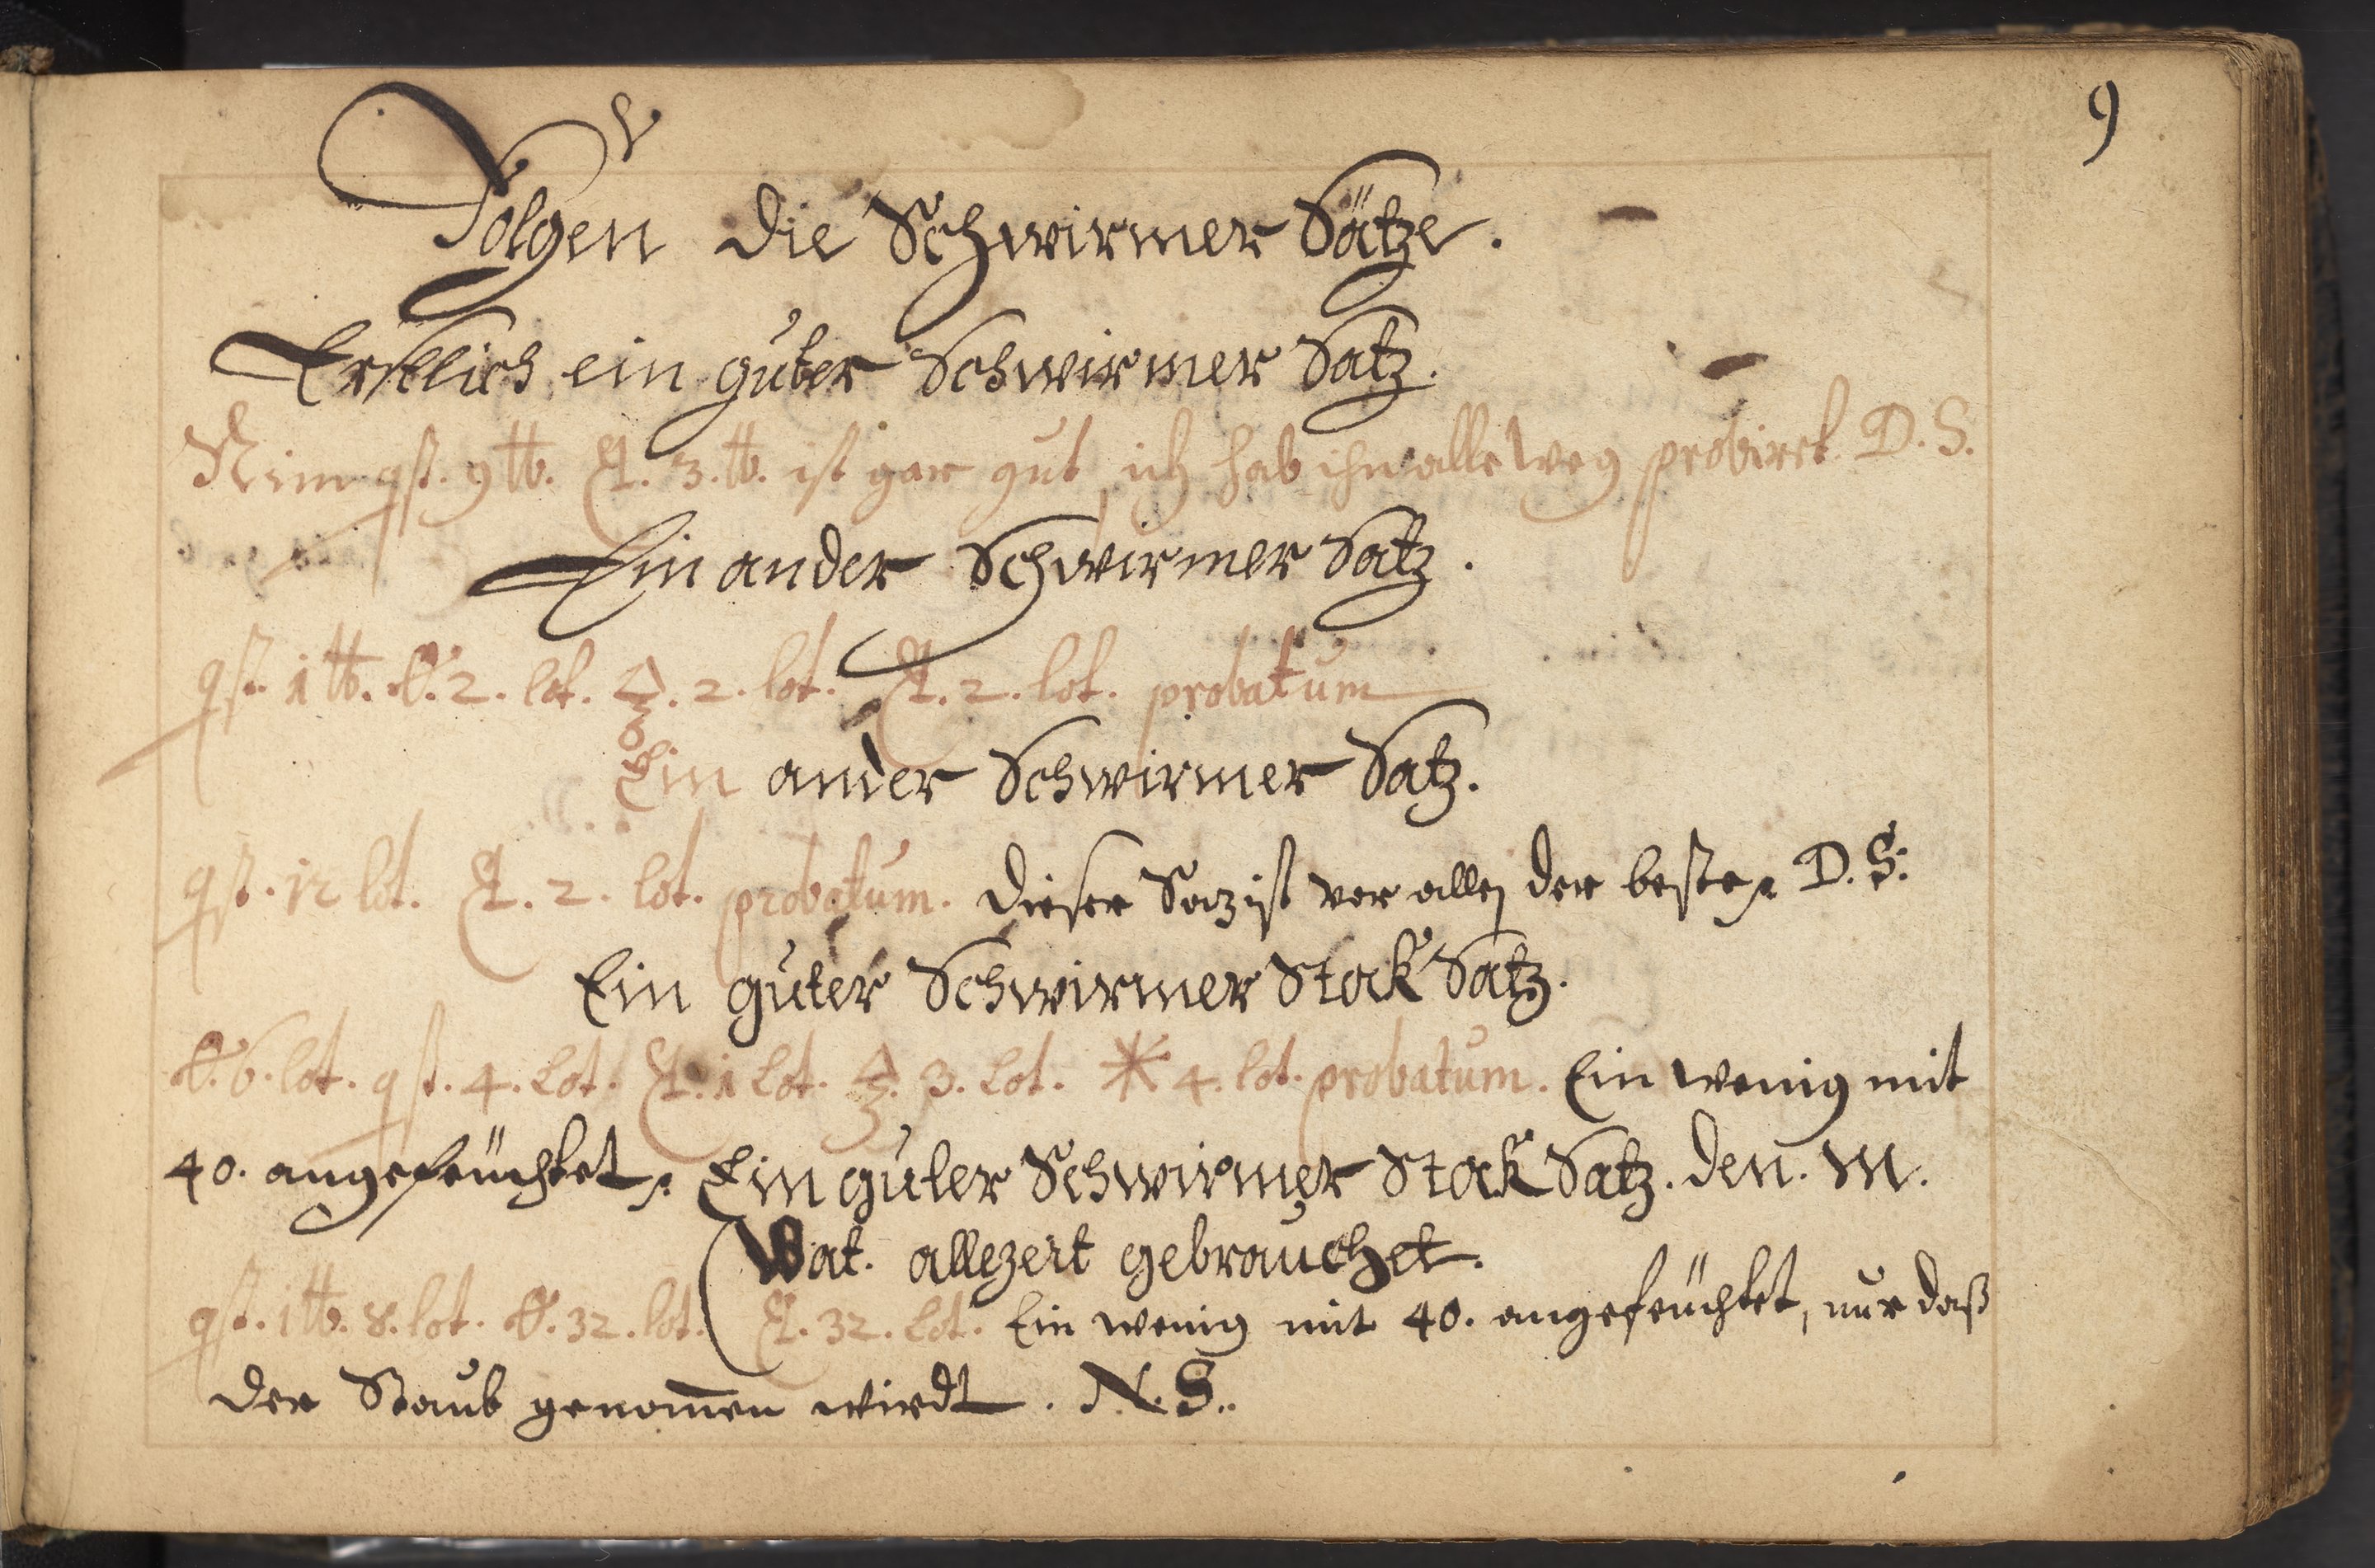 9
Folgen die Schwirmer Sätze.
Erstlich ein guter Schwirmer Satz.
Nim qst. 9 ℔. 3. ℔. ist gar gut, ich hab ihn alleweg probiret. D. S.
Ein ander Schwirmer Satz.
qst. 1 ℔. 2. lot. 2. lot. 2. lot. probatum
Ein ander Schwirmer Satz.
qst. 12 lot. 2. lot. probatum. dieser Saz ist vor allen der beste D. S:
Ein guter Schwirmer Stok Satz.
6. lot. qst. 4. Lot. 1 Lot. 3. Lot. 4. lot. probatum. Ein wenig mit
40. angefeüchtet. Ein guter Schwirmer Stok Satz. den. M.
Wat. allezeit gebrauchet.
qst. 1 ℔. 8. lot. 32. lot. 32. Lot. Ein wenig mit 40. angefeüchtet, nur daß
der Staub genom̅en wirdt. N. S..